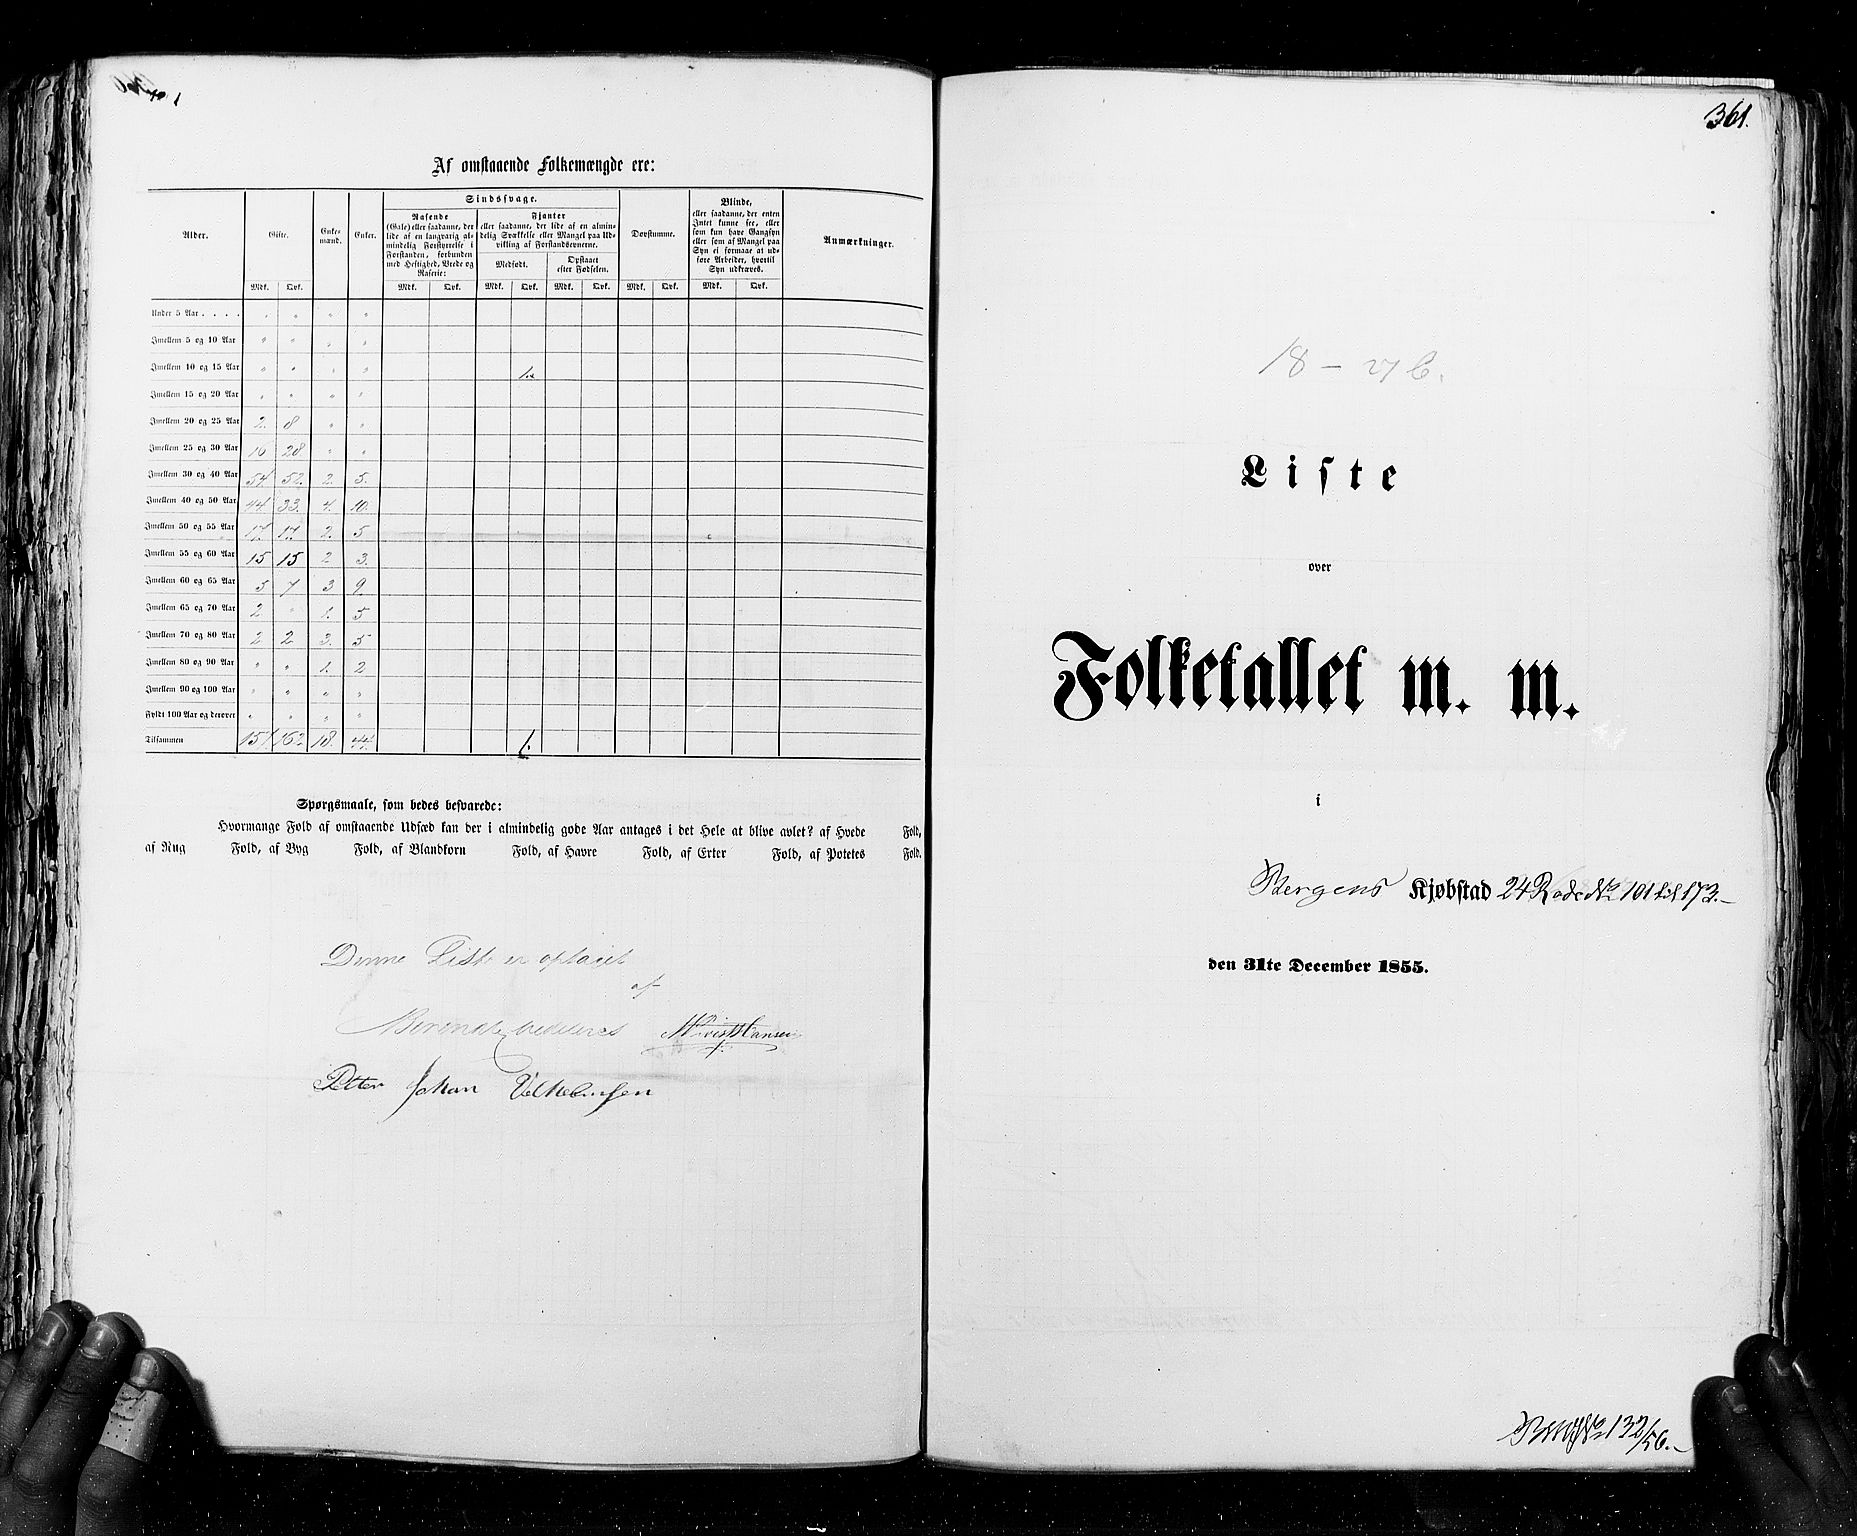 Af omstaaende Folkemængde ere:
Alder. Gifte. Enke-mænd. Enker. Sindssvage. Døvstumme. Blinde, Anmærkninger.
Rasende
(Gale) eller saadanne, der
lide af en langvarig al-
mindelig Forstyrrelse i
Forstanden, forbunden
med Heftighed, Vrede og
Raserie:
Fjanter
eller saadanne, der lide af en almin-
delig Svækkelse eller Mangel paa Ud-
vikling af Forstandsevnerne.
Medfødt. Opstaaet
efter Fødselen.
eller saadanne, der enten
Intet kunne see, eller
som kun have Gangsyn
eller som af Mangel paa
Syn ei formaae at ud-
føre Arbeider, hvortil
Syn udkræves.
Mdk. Qvk. Mdk. Qvk. Mdk. Qvk. Mdk. Qvk. Mdk. Qvk. Mdk. Qvk.
Under 5 Aar . . . . " " " "
Imellem 5 og 10 Aar " " " "
Imellem 10 og 15 Aar " " " " 1.
Imellem 15 og 20 Aar " " " "
Imellem 20 og 25 Aar 2. 8 " "
Imellem 25 og 30 Aar 16 28 " "
Imellem 30 og 40 Aar 54 52. 2. 5.
Imellem 40 og 50 Aar 44 33. 4. 10.
Imellem 50 og 55 Aar 17. 17. 2. 5
Imellem 55 og 60 Aar 15 15 2 3.
Imellem 60 og 65 Aar 5 7 3 9.
Imellem 65 og 70 Aar 2 " 1. 5
Imellem 70 og 80 Aar 2 2 3. 5
Imellem 80 og 90 Aar " " 1. 2
Imellem 90 og 100 Aar " " " "
Fyldt 100 Aar og derover " " " "
Tilsammen 157. 162. 18. 44. 1.
Spørgsmaale, som bedes besvarede:
Hvormange Fold af omstaaende Udsæd kan der i almindelig gode Aar antages i det Hele at blive avlet? af Hvede Fold,
af Rug Fold, af Byg Fold, af Blandkorn Fold, af Havre Fold, af Erter Fold, af Potetes Fold.
Denne Liste er optaget
af
Hansen
Petter Johan
361.
18 – 27 b.
Liste
over
Folketallet m. m.
i
Bergens Kjøbstad 24 Rode No 101 til 173.
den 31te December 1855.
No 132/56.